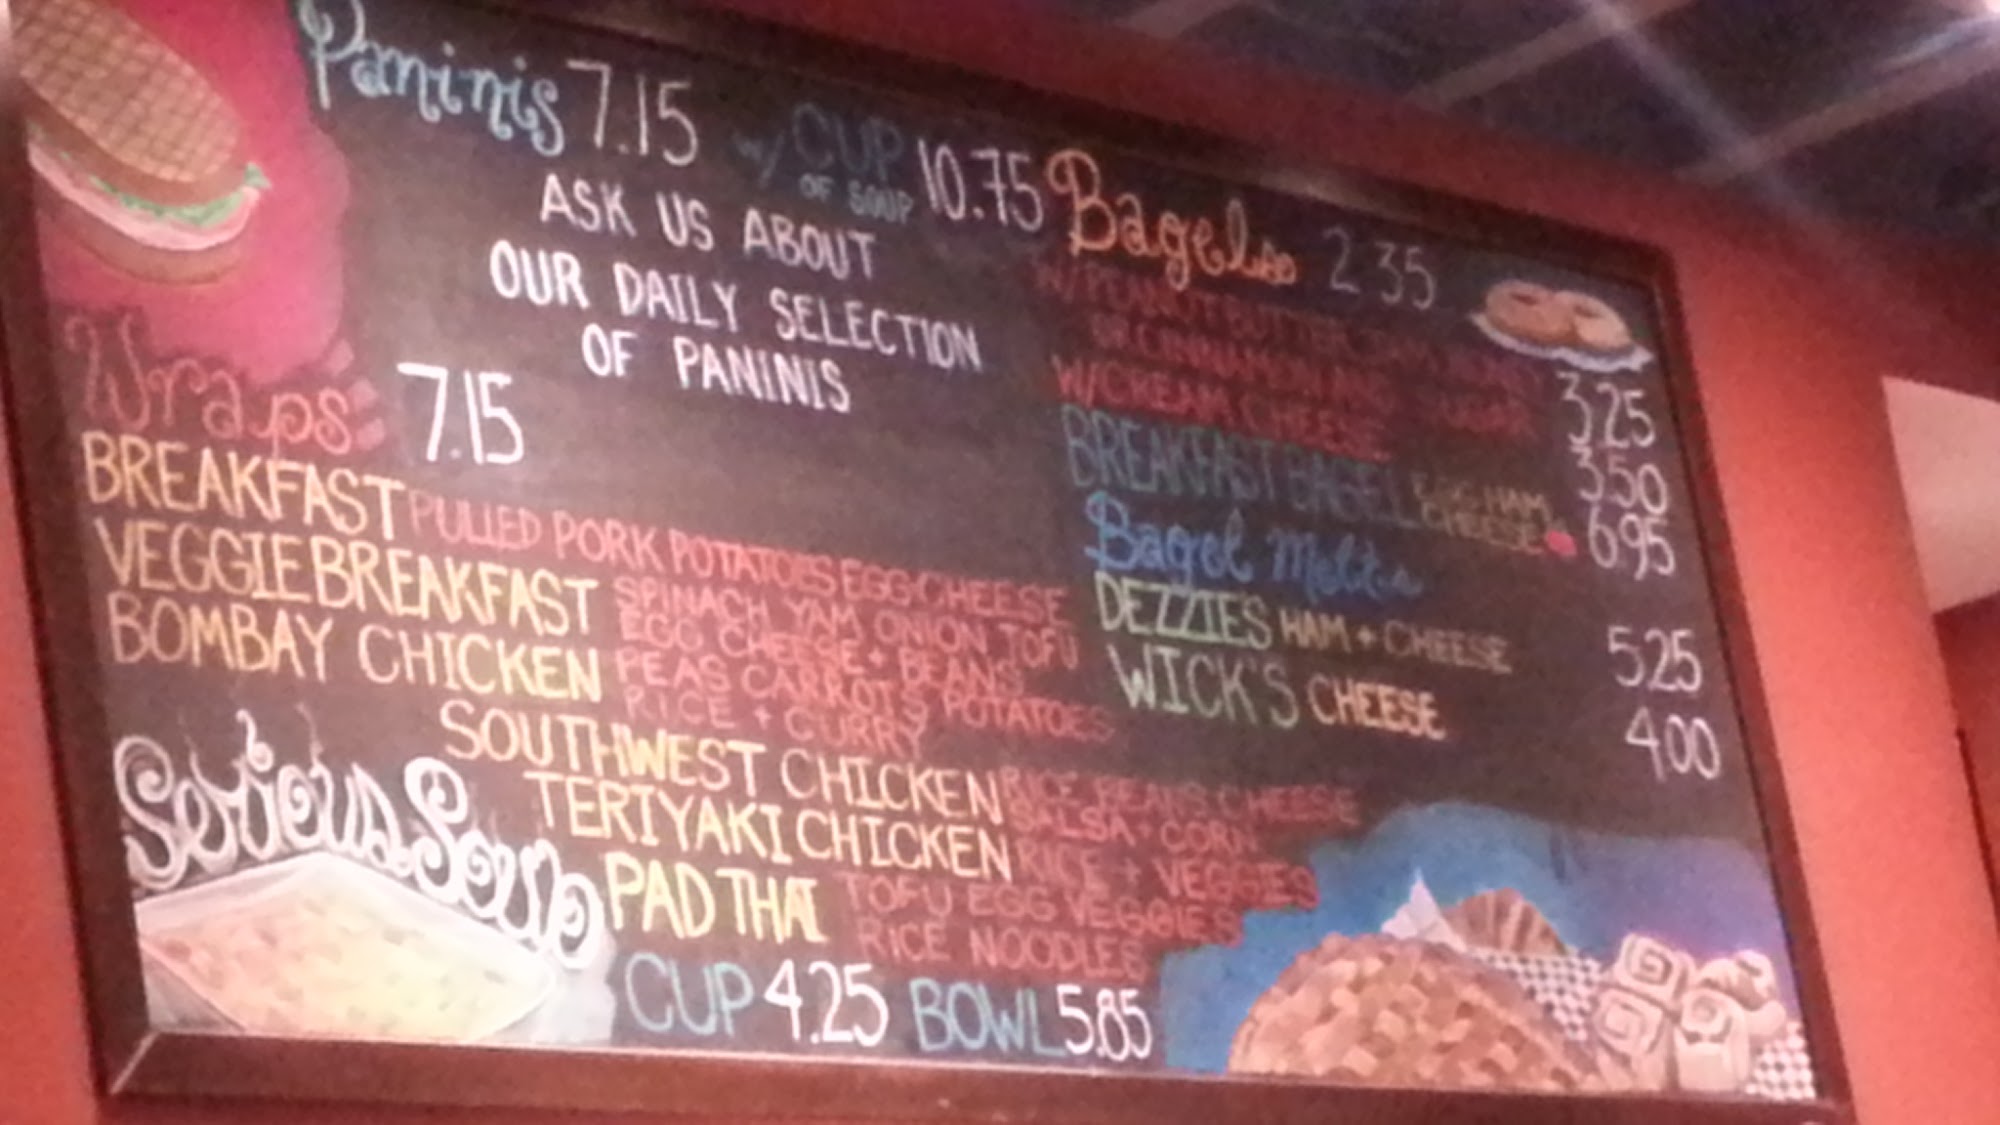 Paninis 7.15 w/ CUP OF SOUP 10.75
ASK US ABOUT
OUR DAILY SELECTION
OF PANINIS
Wraps 7.15
BREAKFAST PULLED PORK POTATOES EGG CHEESE
VEGGIE BREAKFAST SPINACH YAM ONION TOFU
EGG CHEESE + BEANS
BOMBAY CHICKEN PEAS CARROTS POTATOES
RICE + CURRY
SOUTHWEST CHICKEN RICE BEANS CHEESE
SALSA + CORN
TERIYAKI CHICKEN RICE + VEGGIES
PAD THAI TOFU EGG VEGGIES
RICE NOODLES
Serious Soup
CUP 4.25 BOWL 5.85
Bagels 2.35
W/PEANUT BUTTER
OR CINNAMON AND SUGAR 3.25
W/CREAM CHEESE 3.50
BREAKFAST BAGEL EGGS HAM
CHEESE 6.95
Bagel Melts
DEZZIE'S HAM + CHEESE 5.25
WICK'S CHEESE 4.00